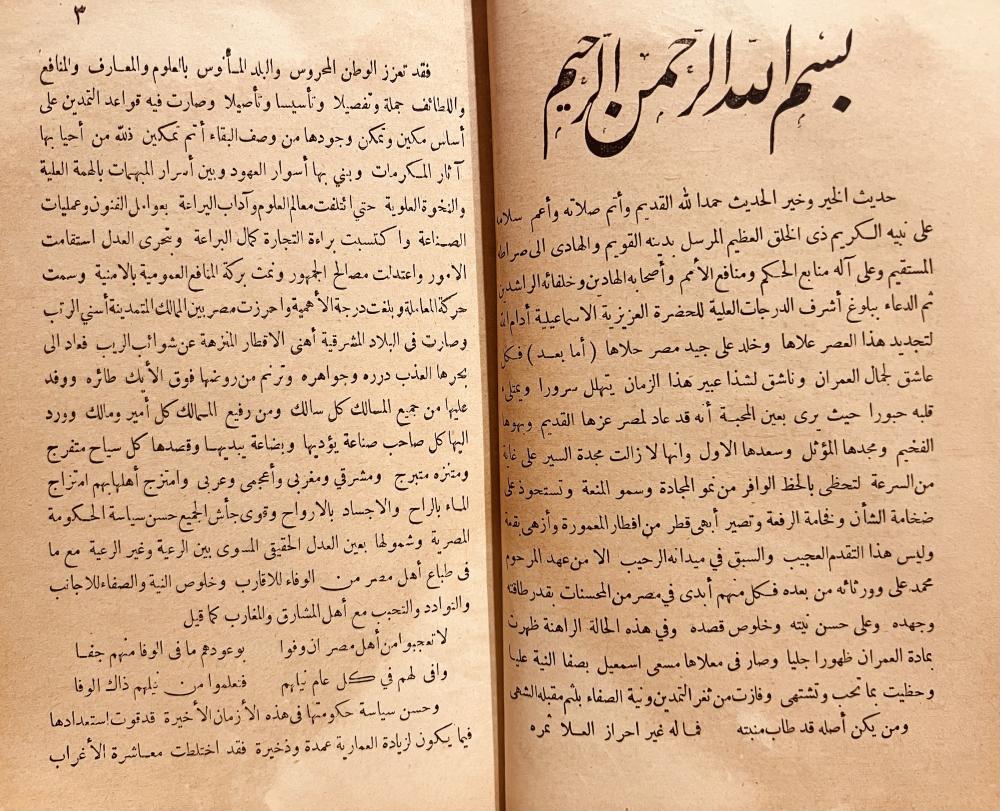 بسم الله الرحمن الرحيم
حديث الخير وخير الحديث حمدا لله القديم وأتم صلاته وأعم سلامه
على نبيه الكريم ذى الخلق العظيم المرسل بدينه القويم والهادى الى صراطه
المستقيم وعلى آله منابع الحكم ومنافع الأمم وأصحابه الهادين وخلفائه الراشدين
ثم الدعاء ببلوغ أشرف الدرجات العلية للحضرة العزيزية الاسماعيلية أدام الله
لتجديد هذا العصر علاها وخلد على جيد مصر حلاها (أما بعد) فكل
عاشق لجمال العمران وناشق لشذا عبير هذا الزمان يتهلل سرورا ويمتلئ
قلبه حبورا حيث يرى بعين المحبة أنه قد عاد لمصر عزها القديم وبهوها
الفخيم ومجدها المؤثل وسعدها الاول وانها لا زالت مجدة السير على غاية
من السرعة لتحظى بالحظ الوافر من نمو المجادة وسمو المنعة وتستحوذ على
ضخامة الشأن وفخامة الرفعة وتصير أبهى قطر من اقطار المعمورة وأزهى بقعة
وليس هذا التقدم العجيب والسبق في ميدانه الرحيب الا من عهد المرحوم
محمد على وورثائه من بعده فكل منهم أبدى في مصر من المحسنات بقدر طاقته
وجهده وعلى حسن نيته وخلوص قصده وفي هذه الحالة الراهنة ظهرت
بمادة العمران ظهورا جليا وصار فى معلاها مسعى اسمعيل بصفا النية عليا
وحظيت بما تحب وتشتهى وفازت من ثغر التمدين ونية الصفاء بلثم مقبله الشهى
ومن يكن أصله قد طاب منبته فما له غير احراز العلا ثمره
٣
فقد تعزز الوطن المحروس والبلد المأنوس بالعلوم والمعارف والمنافع
واللطائف جملة وتفصيلا وتأسيسا وتأصيلا وصارت فيه قواعد التمدين على
أساس مكين وتمكن وجودها من وصف البقاء أتم تمكين فلله من أحيا بها
آثار المكرمات وبني بها أسوار العهود وبين أسرار المبهمات بالهمة العلية
والنخوة العلوية حتى ائتلفت معالم العلوم وآداب البراعة بعوامل الفنون وعمليات
الصناعة واكتسبت براءة التجارة كمال البراعة وبتحرى العدل استقامت
الامور واعتدلت مصالح الجمهور ونمت بركة المنافع العمومية بالامنية وسمت
حركة المعاملة وبلغت درجة الأهمية واحرزت مصر بين الممالك المتمدينة أسنى الرتب
وصارت فى البلاد المشرقية أهنى الاقطار المنزهة عن شوائب الريب فعاد الى
بحرها العذب درره وجواهره وترنم من روضها فوق الأيك طائره ووفد
عليها من جميع المسالك كل سالك ومن رفيع الممالك كل أمير ومالك وورد
اليها كل صاحب صناعة يؤديها وبضاعة يبديها وقصدها كل سياح متفرج
ومتنزه متبرج ومشرقي ومغربى وأعجمى وعربى وامتزج أهلها بهم امتزاج
الماء بالراح والاجساد بالارواح وقوى جأش الجميع حسن سياسة الحكومة
المصرية وشمولها بعين العدل الحقيقى المسوى بين الرعية وغير الرعية مع ما
فى طباع أهل مصر من الوفاء للاقارب وخلوص النية والصفاء للاجانب
والتوادد والتحبب مع أهل المشارق والمغارب كما قيل
لا تعجبوا من أهل مصر ان وفوا بوعودهم ما فى الوفا منهم جفا
وافى لهم في كل عام نيلهم فتعلموا من نيلهم ذاك الوفا
وحسن سياسة حكومتها فى هذه الأزمان الأخيرة قد قوت استعدادها
فيما يكون لزيادة العمارية عمدة وذخيرة فقد اختلطت معاشرة الأغراب